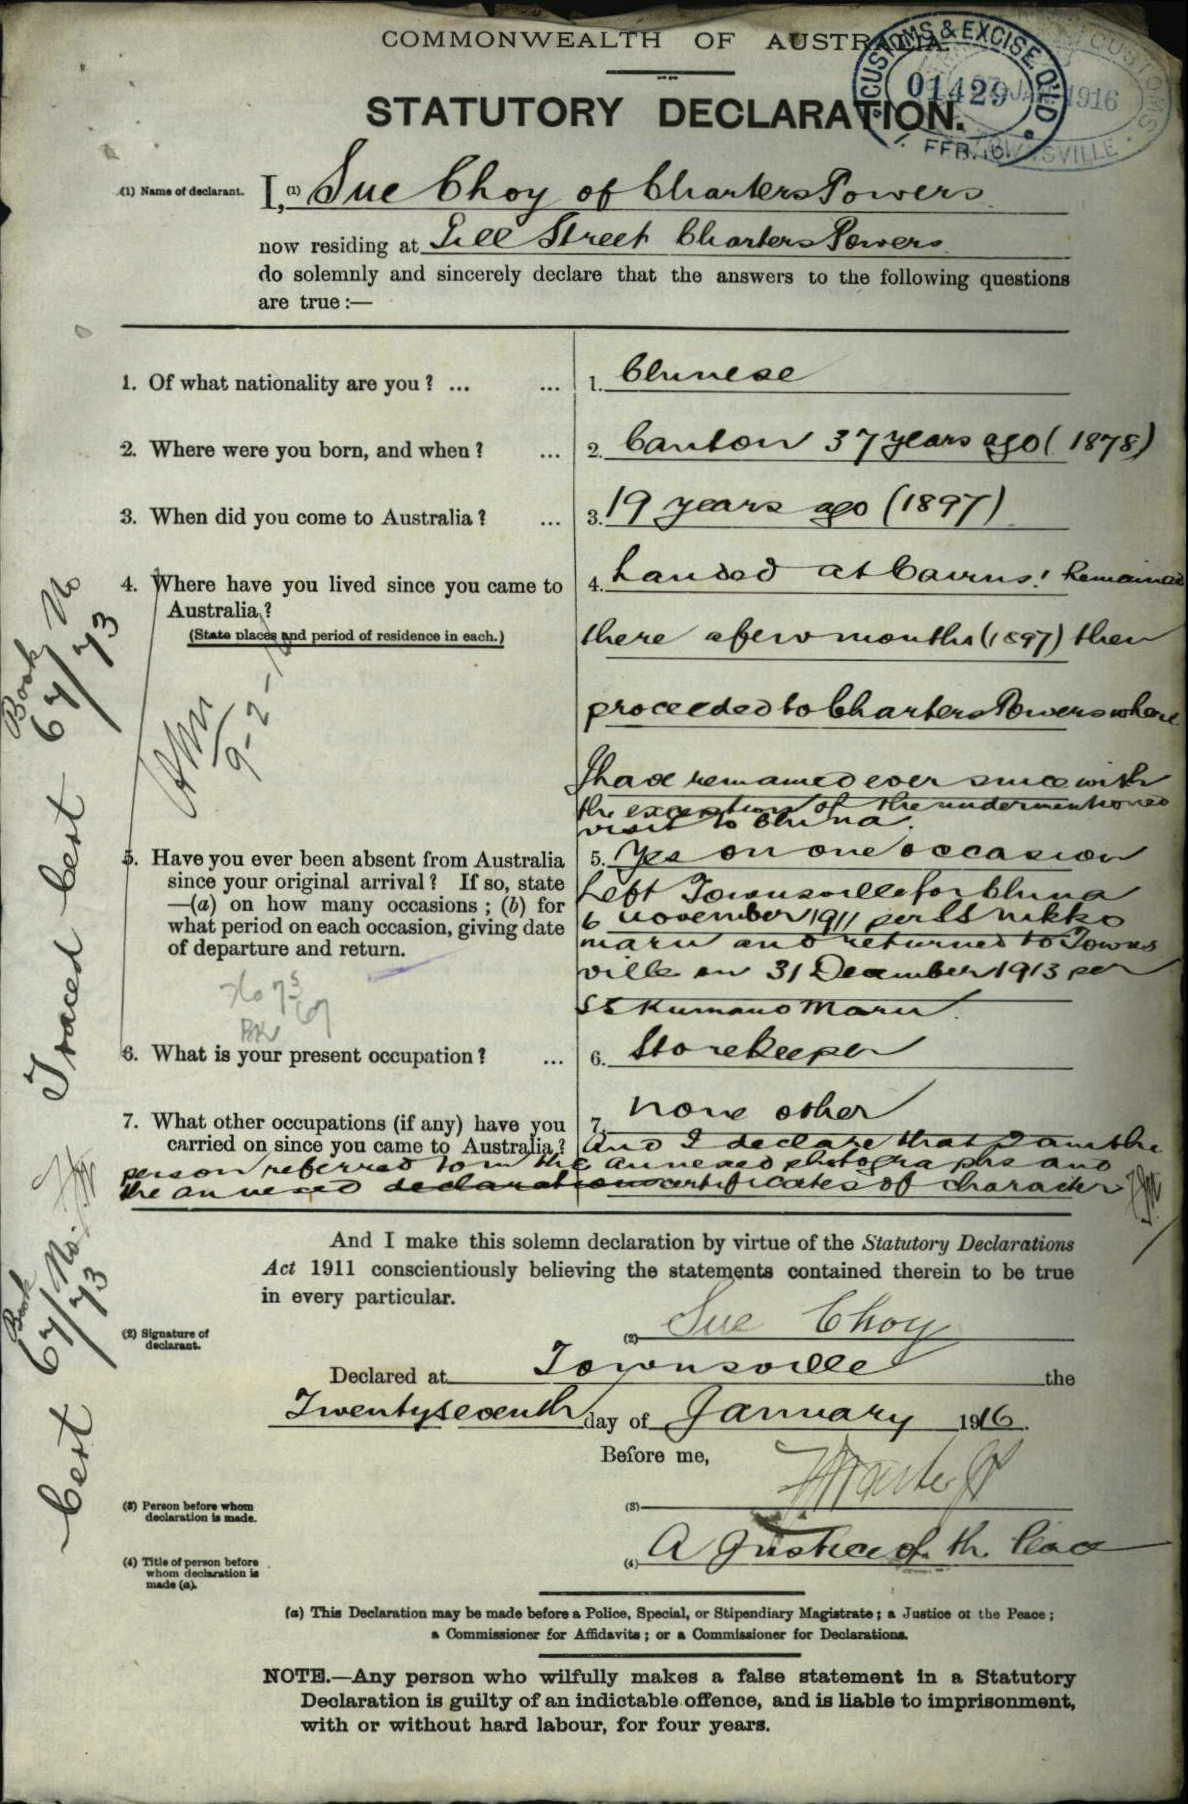 COMMONWEALTH OF AUSTRALIA.
CUSTOMS & EXCISE QLD
01429
1 FEB. 16
27 JAN 1916
CUSTOMS
TOWNSVILLE
STATUTORY DECLARATION.
(1) Name of declarant.
I, (1) Sue Choy of Charters Towers
now residing at Gill Street Charters Towers
do solemnly and sincerely declare that the answers to the following questions
are true :—
1. Of what nationality are you ? ... ... 1. Chinese
2. Where were you born, and when ? ... 2. Canton 37 years ago (1878)
3. When did you come to Australia ? ... 3. 19 years ago (1897)
4. Where have you lived since you came to
Australia ?
(State places and period of residence in each.)
4. Landed at Cairns! Remained
there a few months (1897) then
proceeded to Charters Towers where
I have remained ever since with
the exception of the undermentioned
visit to China.
5. Have you ever been absent from Australia
since your original arrival ? If so, state
—(a) on how many occasions ; (b) for
what period on each occasion, giving date
of departure and return.
5. Yes on one occasion
Left Townsville for China
6 November 1911 per SS Nikko
Maru and returned to Towns
ville on 31 December 1913 per
SS Kumano Maru.
No 73
BK 67
6. What is your present occupation ? ... 6. Storekeeper
7. What other occupations (if any) have you
carried on since you came to Australia ?
7. None other
And I declare that I am the
person referred to in the annexed photographs and
the annexed declarations certificates of character
And I make this solemn declaration by virtue of the Statutory Declarations
Act 1911 conscientiously believing the statements contained therein to be true
in every particular.
(2) Signature of
declarant.
(2) Sue Choy
Declared at Townsville the
Twentyseventh day of January 1916.
Before me,
(3) Person before whom
declaration is made.
(3)
(4) Title of person before
whom declaration is
made (a).
(4) A Justice of the Peace
(a) This Declaration may be made before a Police, Special, or Stipendiary Magistrate ; a Justice of the Peace ;
a Commissioner for Affidavits ; or a Commissioner for Declarations.
NOTE.—Any person who wilfully makes a false statement in a Statutory
Declaration is guilty of an indictable offence, and is liable to imprisonment,
with or without hard labour, for four years.
Traced Cert
Book No
67/73
9-2-
Cert
Book No.
67/73